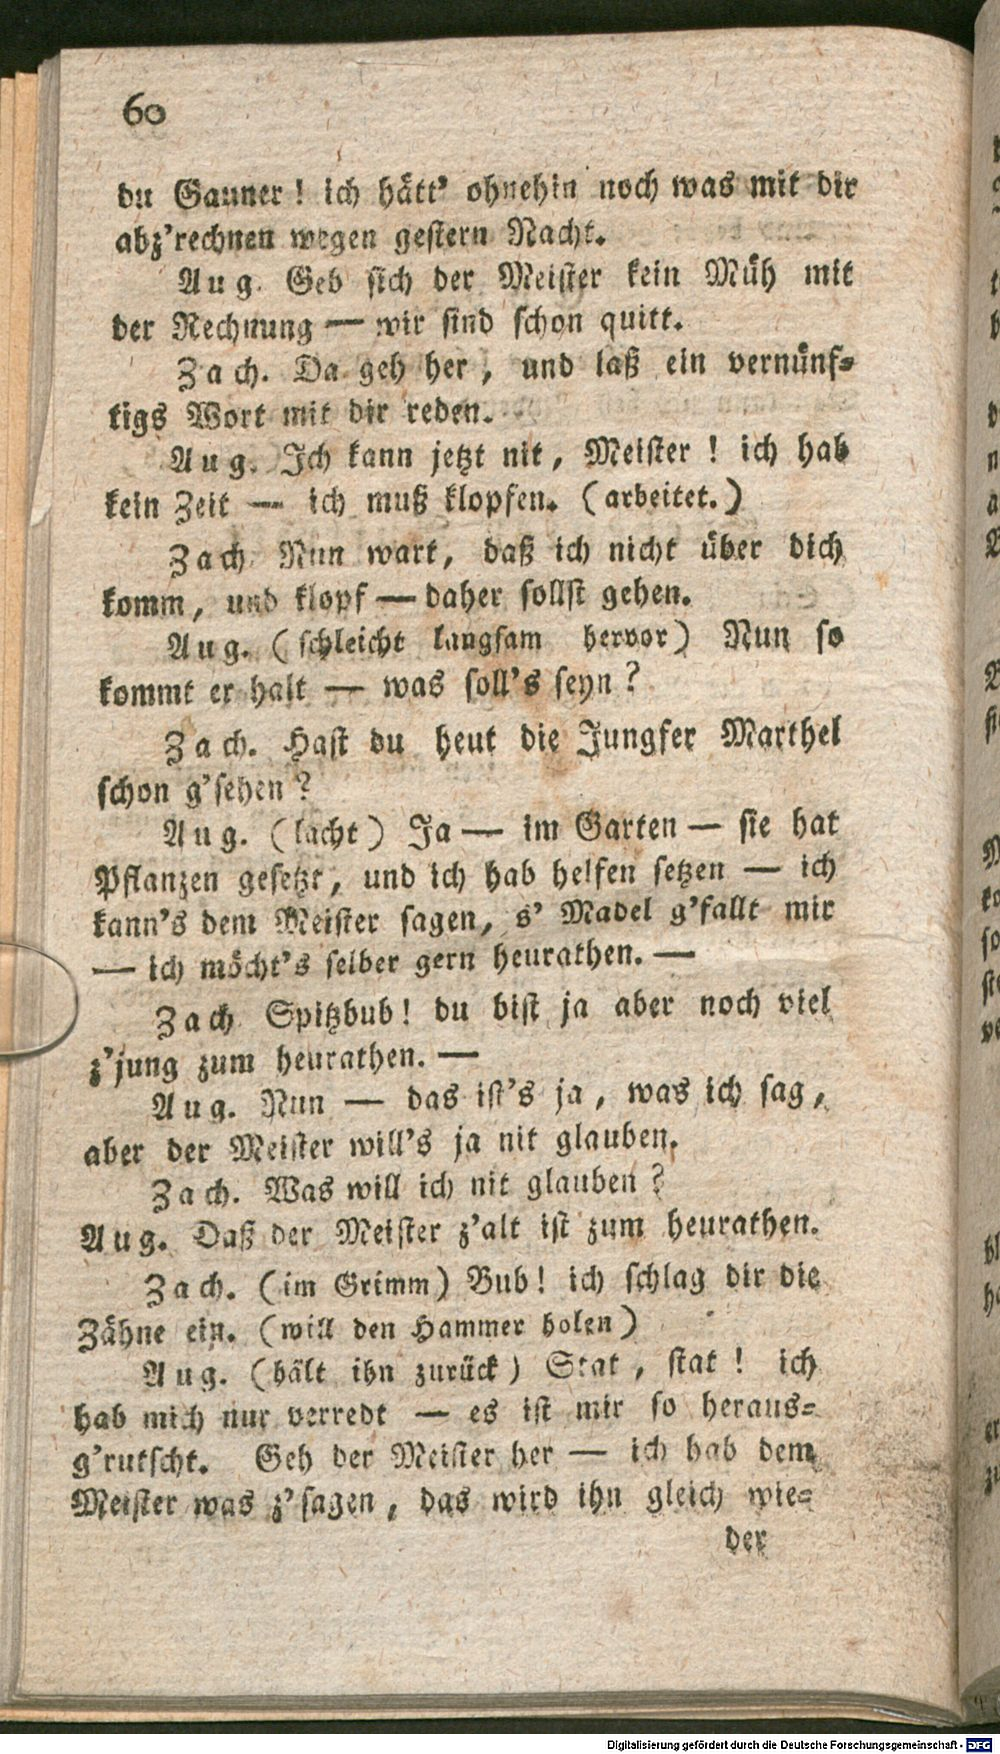 60
du Gauner! ich hätt' ohnehin noch was mit dir
abz'rechnen wegen gestern Nacht.
Aug. Geb sich der Meister kein Müh mit
der Rechnung — wir sind schon quitt.
Zach. Da geh her, und laß ein vernünf-
tigs Wort mit dir reden.
Aug. Ich kann jetzt nit, Meister! ich hab
kein Zeit — ich muß klopfen. (arbeitet.)
Zach Nun wart, daß ich nicht über dich
komm, und klopf — daher sollst gehen.
Aug. (schleicht langsam hervor) Nun so
kommt er halt — was soll's seyn?
Zach. Hast du heut die Jungfer Marthel
schon g'sehen?
Aug. (lacht) Ja — im Garten — sie hat
Pflanzen gesetzt, und ich hab helfen setzen — ich
kann's dem Meister sagen, s' Madel g'fallt mir
— ich möcht's selber gern heurathen. —
Zach Spitzbub! du bist ja aber noch viel
z'jung zum heurathen. —
Aug. Nun — das ist's ja, was ich sag,
aber der Meister will's ja nit glauben.
Zach. Was will ich nit glauben?
Aug. Daß der Meister z'alt ist zum heurathen.
Zach. (im Grimm) Bub! ich schlag dir die
Zähne ein. (will den Hammer holen)
Aug. (hält ihn zurück) Stat, stat! ich
hab mich nur verredt — es ist mir so heraus-
g'rutscht. Geh der Meister her — ich hab dem
Meister was z'sagen, das wird ihn gleich wie-
der
Digitalisierung gefördert durch die Deutsche Forschungsgemeinschaft - DFG